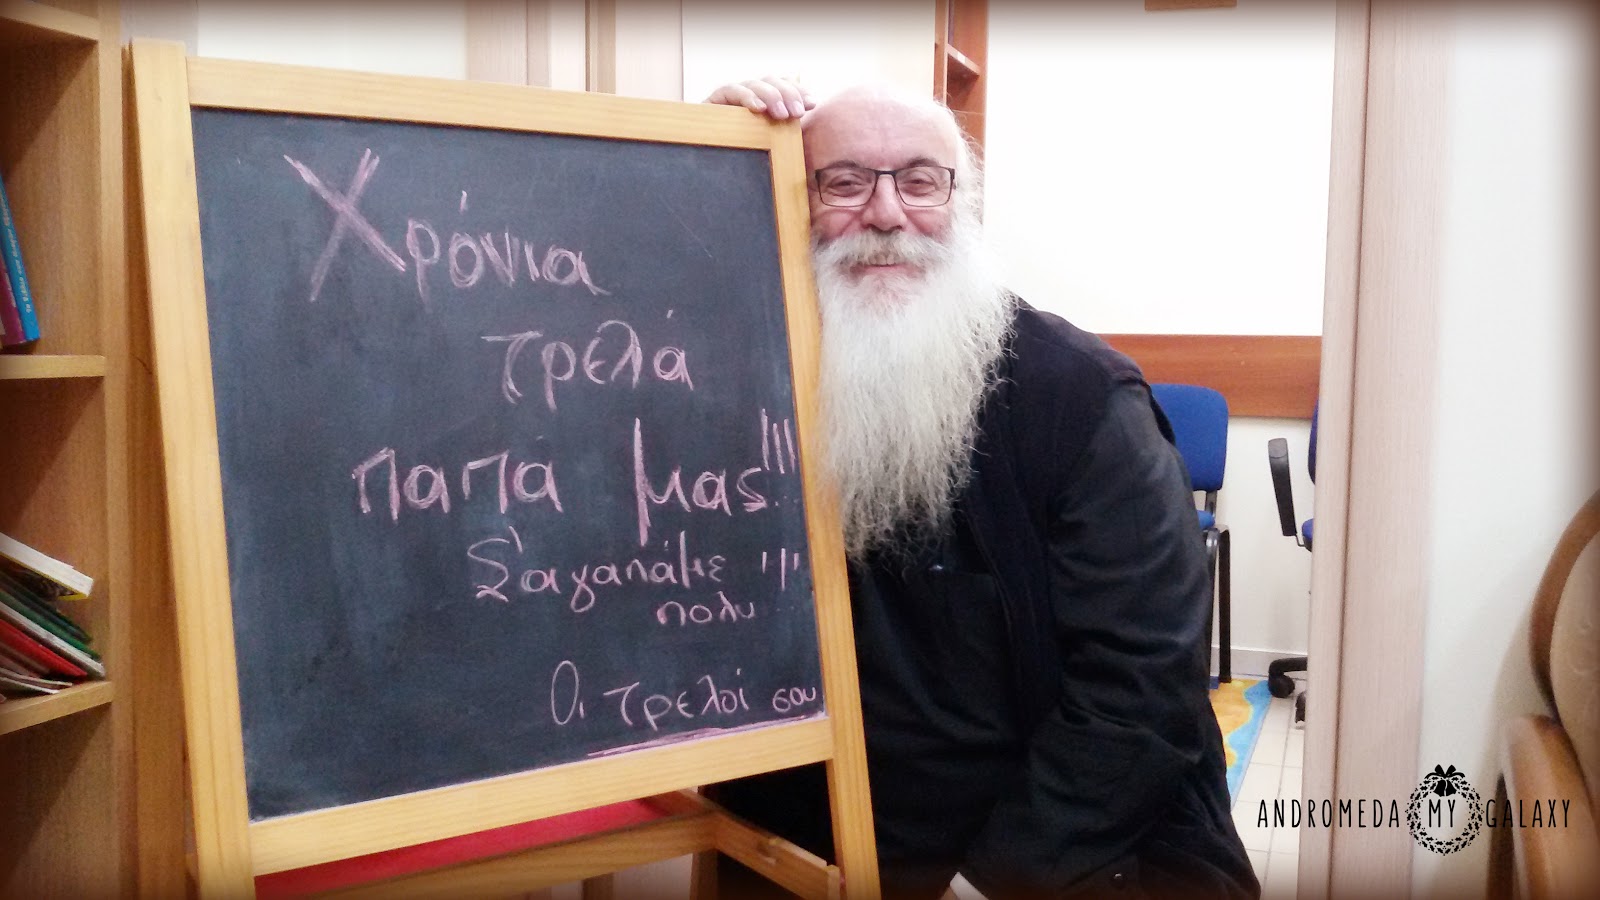 Χρόνια
τρελά
παπά μας!!!
Σ'αγαπάμε !!!
πολυ
Οι τρελοί σου
ANDROMEDA MY GALAXY